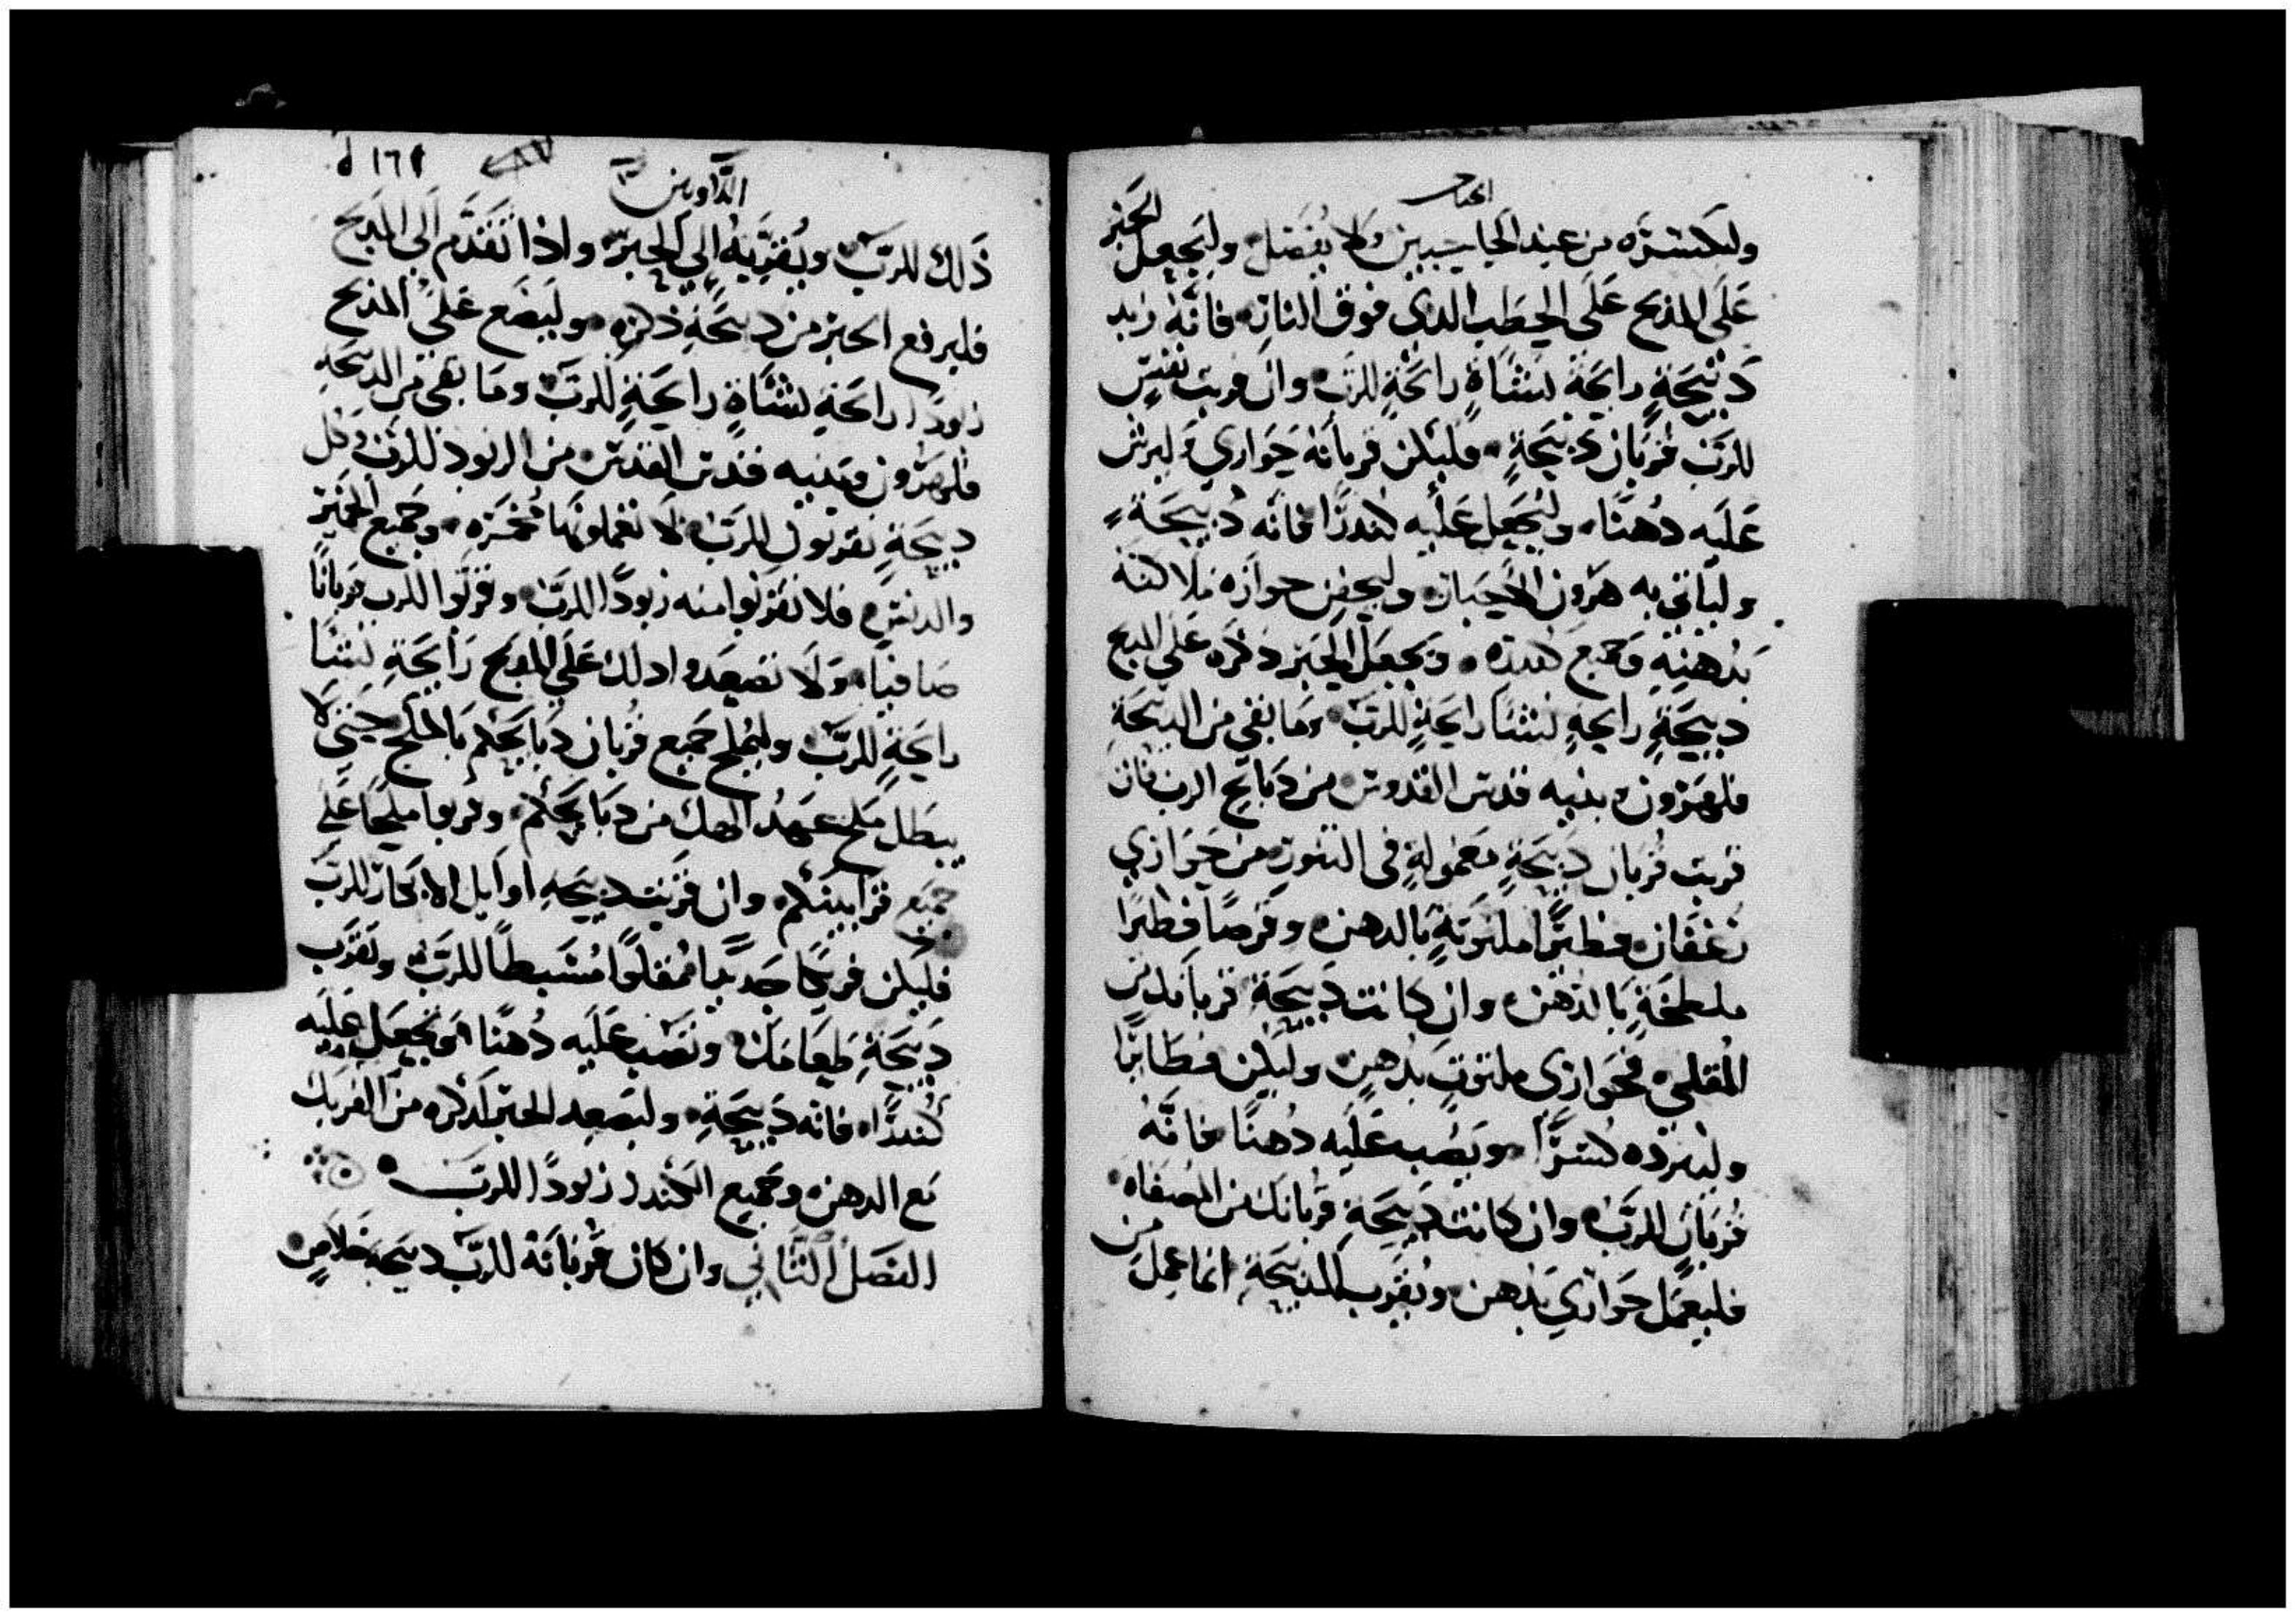 ولكسره من عند الجانبين ولا يفصل وليجعل الحبر
على المذبح على الحطب الدى فوق النار فانه زبد
دبيحة رايحة نشاة رايحة للرب وان قربت نفس
للرب قربان دبيحة فليكن قربانه حوارى وليرش
عليه دهنا وليجعل عليه كندرا فانه دبيحة
ولياتى به هرون الاحبار وليحفن حواره ملا كفه
بدهنه وجميع كندره ويجعل الحبر ذكره على المدبح
دبيحة رايحة نشا رايحة للرب وما بقى من الدبيحة
فلهرون وبنيه قدس القدوس من دبايح الرب فان
قربت قربان دبيحة معمولة فى التنور من حوارى
رغفان فطيرا ملتوتة بالدهن وقرصا فطيرا
ملطخة بالدهن وان كانت دبيحة قربانك من
المقلى فحوارى ملتوت بدهن وليكن فطايرا
وليثرده كسرا ويصب عليه دهنا فانه
قربان للرب وان كانت دبيحة قربانك من المصفاه
فليعمل حوارى بدهن ويقرب الدبيحة انما عمل من
اللاويين
ذلك للرب ويقربه الى الحبر واذا تقدم الى المدبح
فليرفع الحبر من دبيحة ذكره وليضع على المدبح
زبودا رايحة نشاة رايحة للرب وما بقى من الدبيحة
فلهرون وبنيه قدس القدس من الزبود للرب وكل
دبيحة تقربون للرب لا تعملونها مخمره وجميع الخمير
والدبس فلا تقربوا منه زبودا للرب وقربوا للرب قربانا
صافيا ولا تصعدوا ذلك على المدبح رايحة نشا
رايحة للرب وليملح جميع قربان دبايحكم بالملح حتى لا
يبطل ملح عهد الهك من دبايحكم وقربوا ملحا على
جميع قرابينكم وان قربت دبيحة اوايل الابكار للرب
فليكن فريكا جديدا مقلوا مشبطا للرب وتقرب
دبيحة طعامك وتصب عليه دهنا وتجعل عليه
كندرا فانه دبيحة وليصعد الحبر ذكره من الفريك
مع الدهن وجميع الكندر زبودا للرب
الفصل الثانى وان كان قربانه للرب دبيحة خلاص